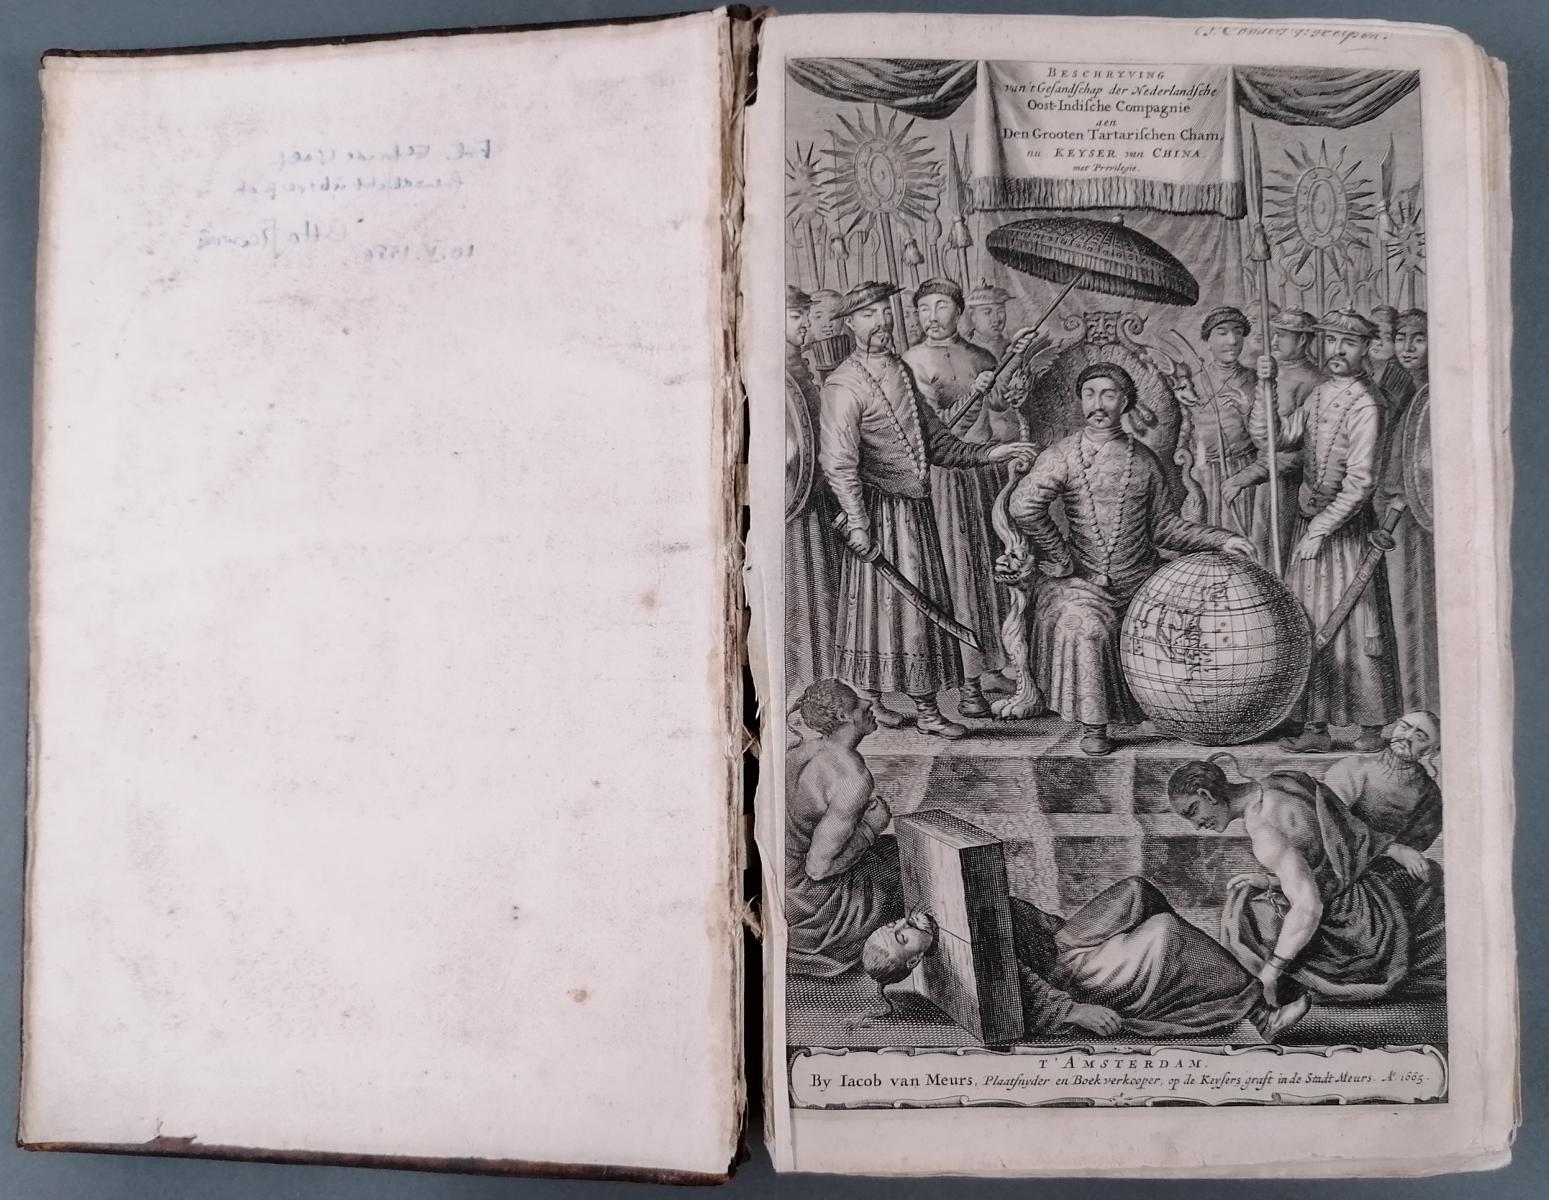 BESCHRYVING
van't Gesandschap der Nederlandsche
Oost-Indische Compagnie
aen
Den Grooten Tartarischen Cham,
nu KEYSER van CHINA.
met Previlegie.
T'AMSTERDAM.
By Iacob van Meurs, Plaatsnyder en Boekverkooper, op de Keysersgraft in de Stadt Meurs. Aº. 1665.